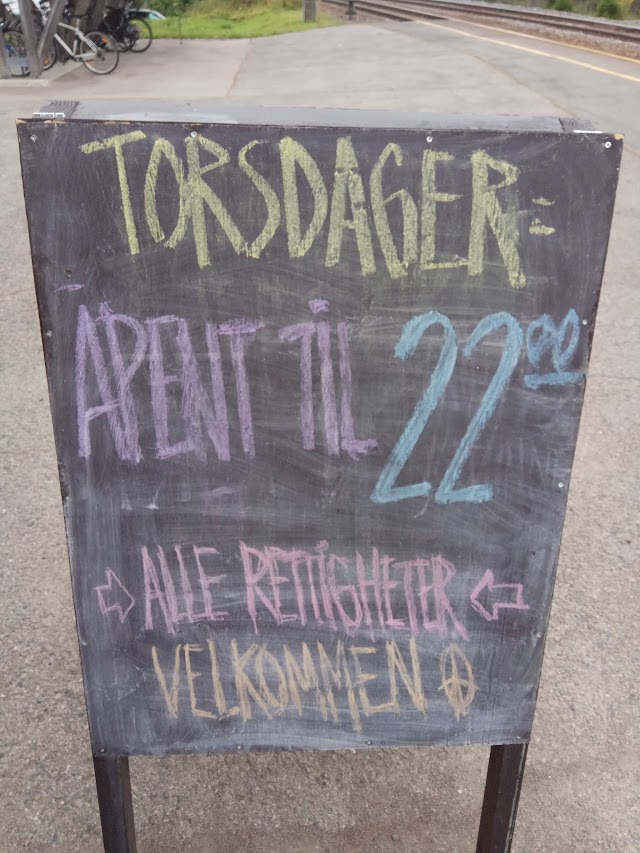 TORSDAGER=
ÅPENT TIL 22⁰⁰
ALLE RETTIGHETER
VELKOMMEN